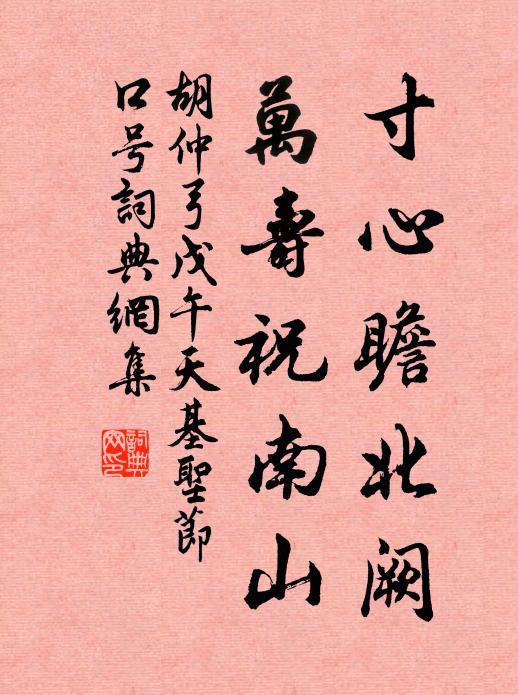 寸心瞻北阙
萬壽祝南山
胡仲弓戊午天基聖節
口号詞典網集
詞典网印